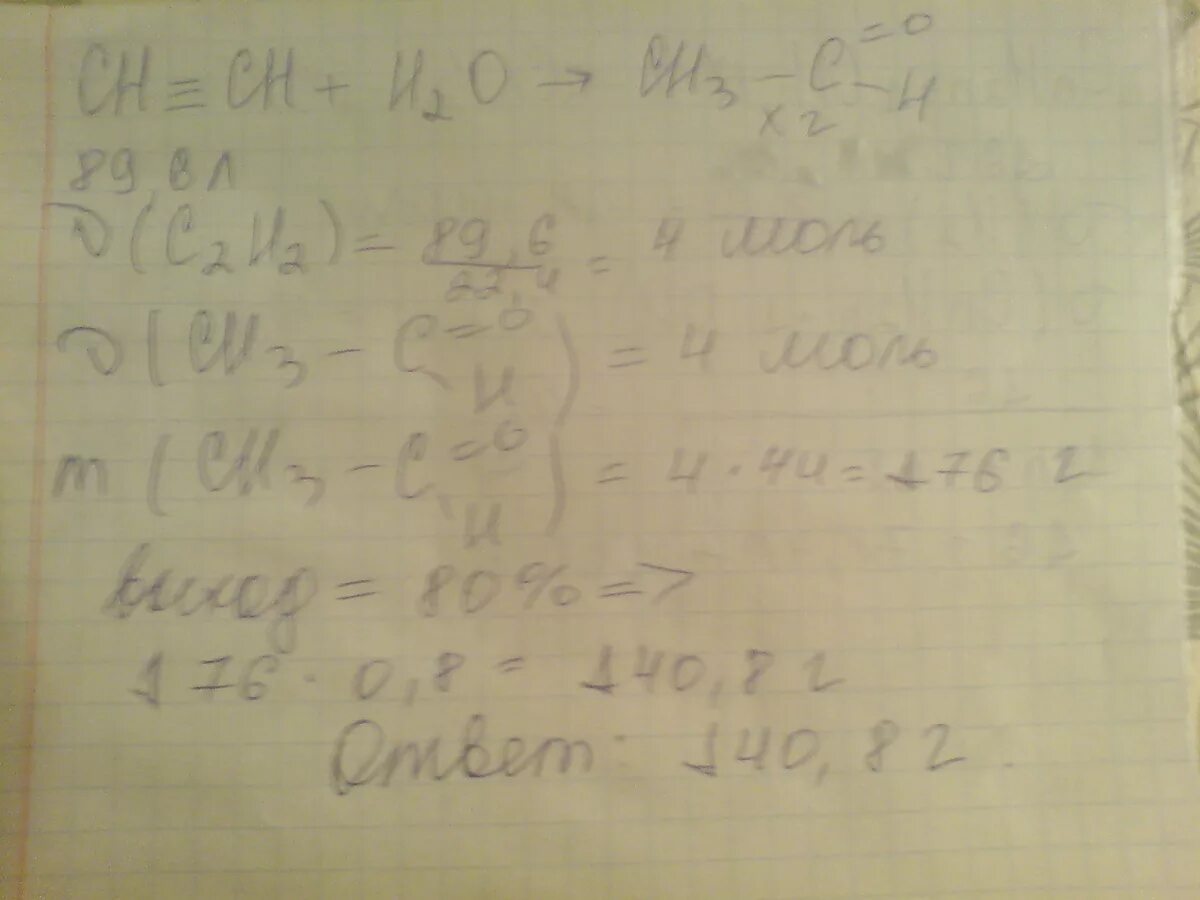 CH ≡ CH + H₂O → CH₃ – C =O –H
х г
89,6 л
ν(C₂H₂) = 89,6 / 22,4 = 4 моль
ν(CH₃ – C =O \H) = 4 моль
m(CH₃ – C =O \H) = 4 · 44 = 176 г
выход = 80% =>
176 · 0,8 = 140,8 г
Ответ: 140,8 г.